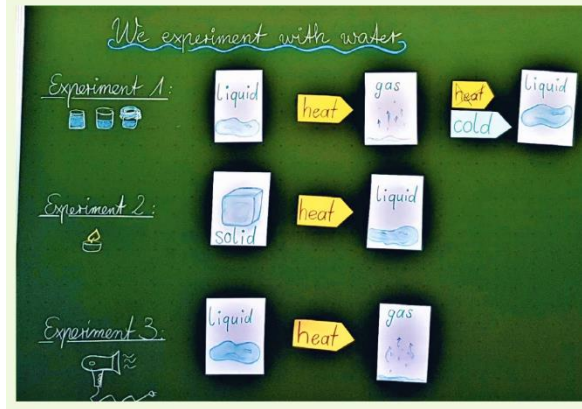 We experiment with water
Experiment 1:
liquid
heat
gas
heat
cold
liquid
Experiment 2:
solid
heat
liquid
Experiment 3.
liquid
heat
gas